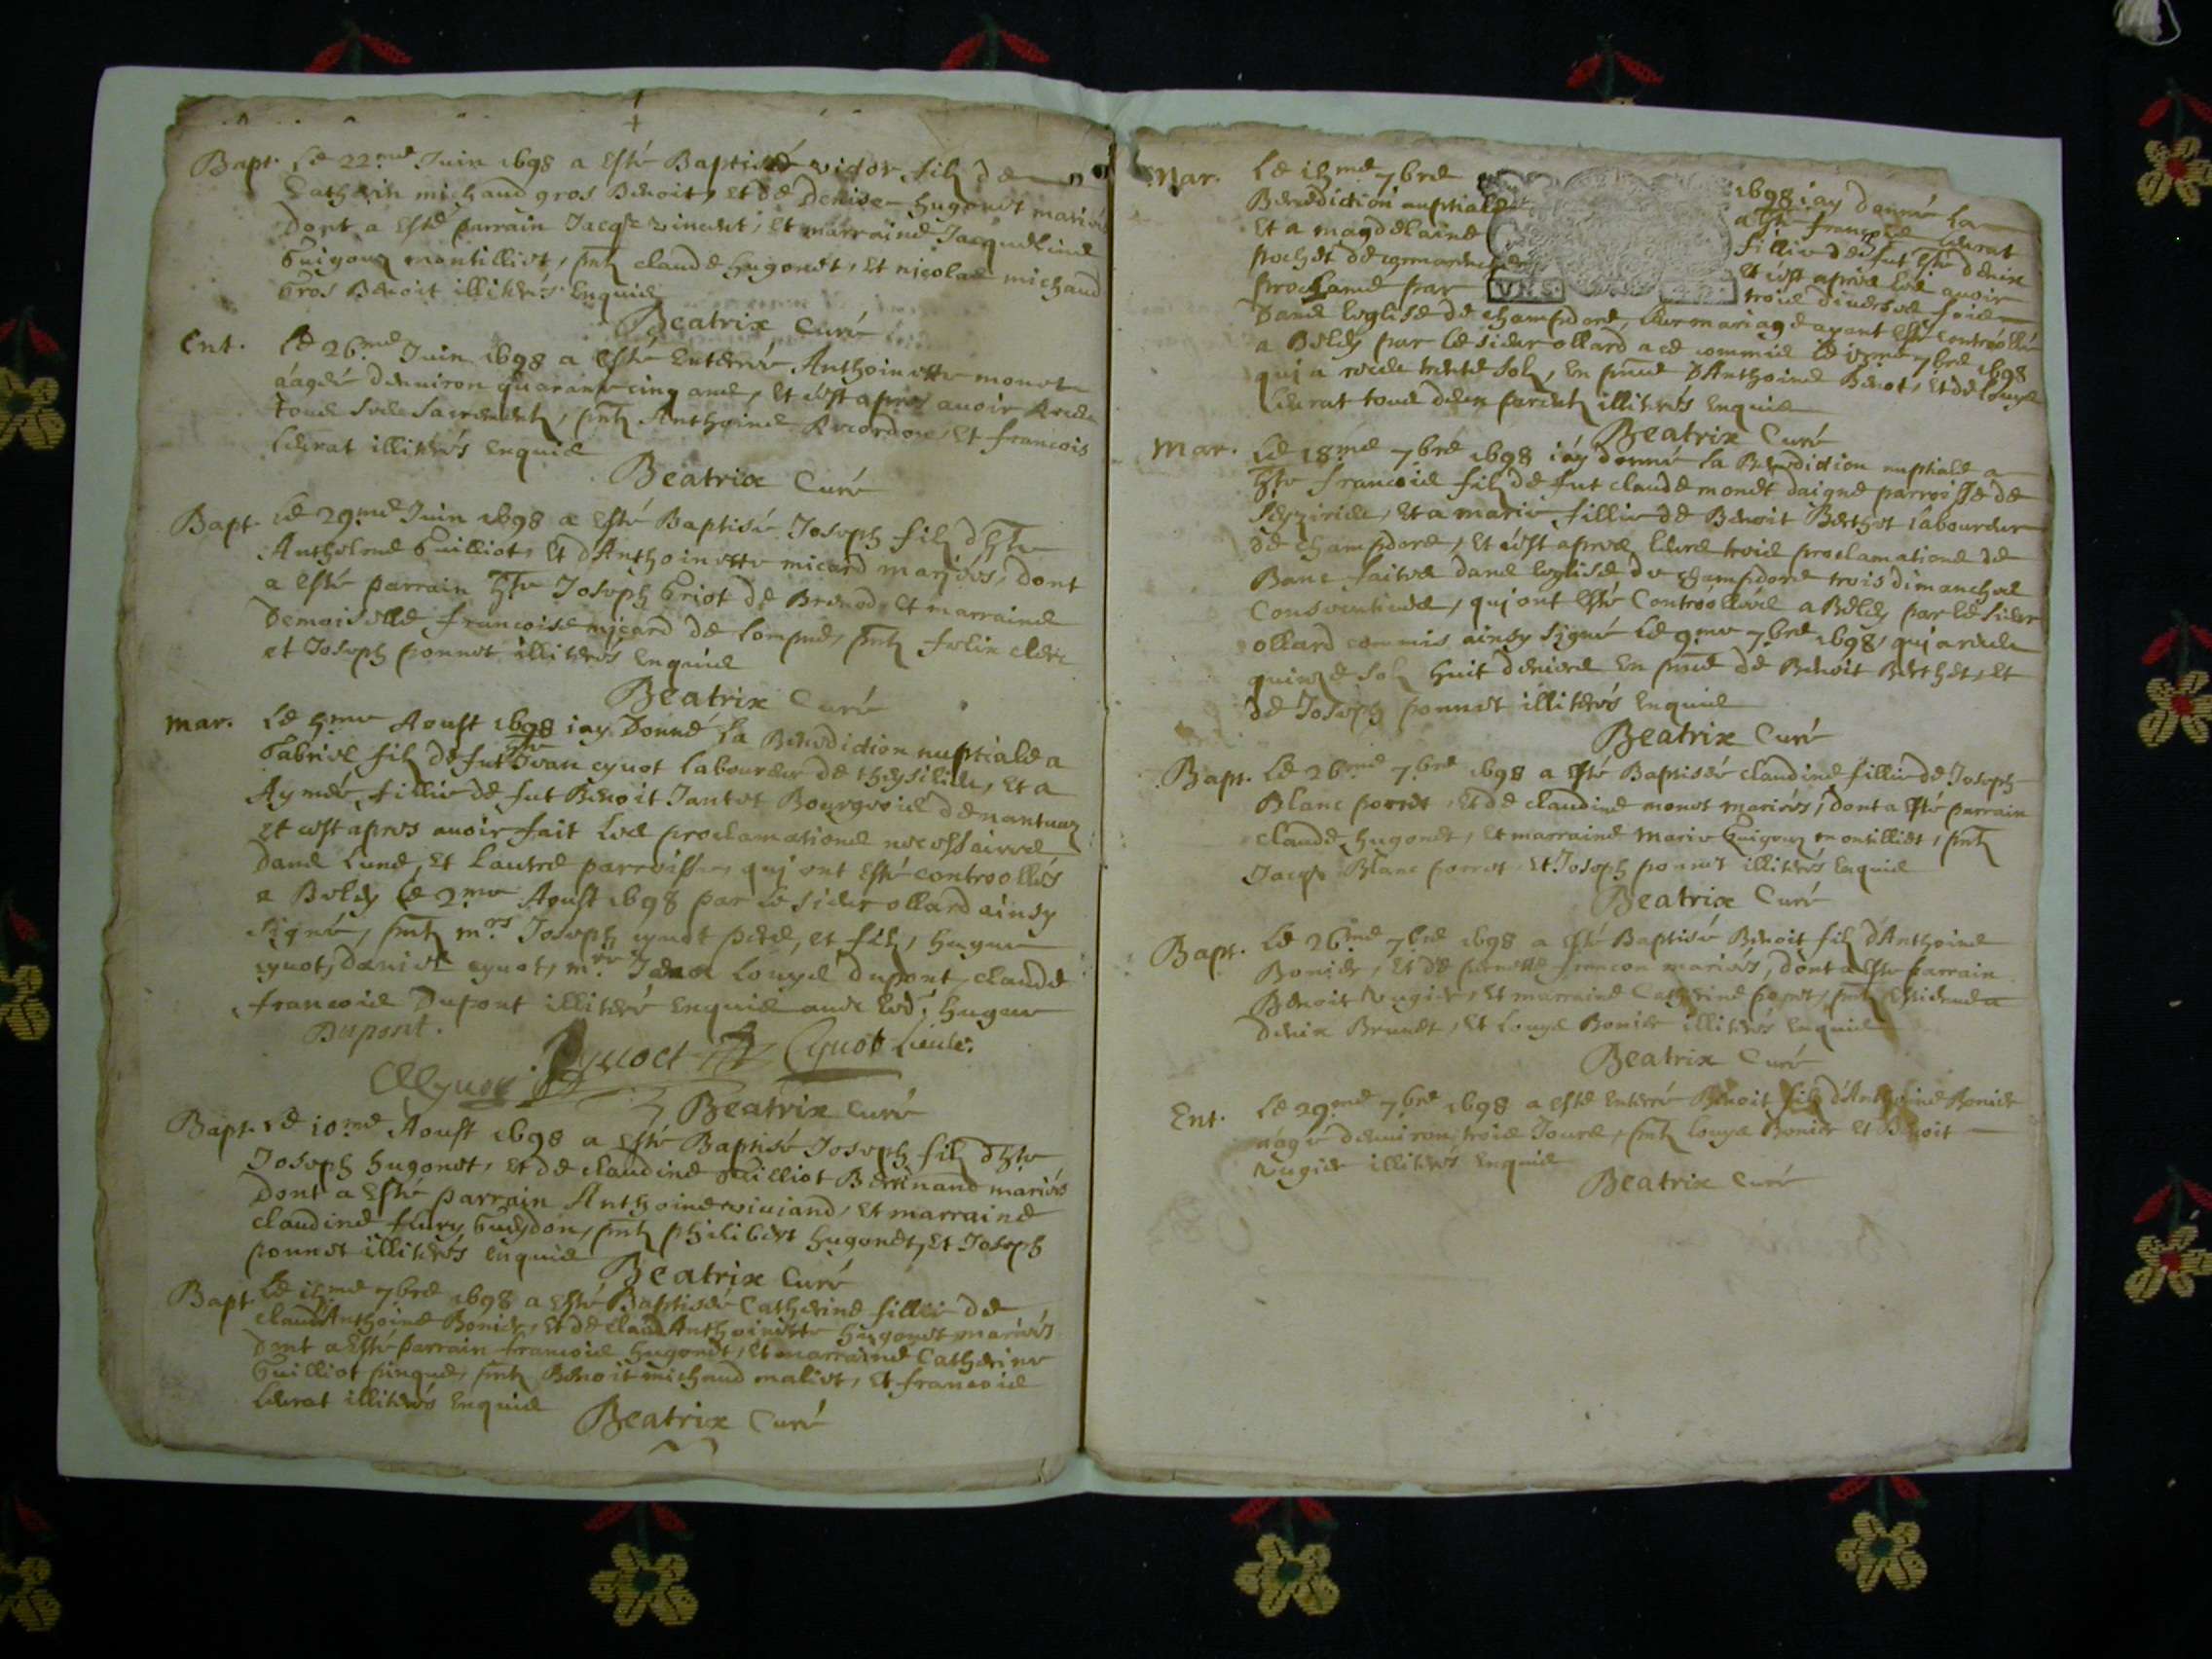 Bapt. Le 22me Juin 1698 a esté Baptisé victor filz de
Cathelin michaud gros Benoit, et de Denise hugonet mariés
Dont a esté parrain Jacqe vincent, et marraine Jacqueline
Guigouz montilliet, pntz claude hugonet, et nicolas michaud
Gros Benoit illiterés Enquis
Beatrix Curé
Ent. Le 26me Juin 1698 a esté Enterrée Anthoinette monet
aagée denuiron quarante cinq ans, et c'est apres auoir Receu
tous ses Sacrements, pntz Anthoine Recordon, et francois
Leurat illiterés enquis
Beatrix Curé
Bapt. Le 29me Juin 1698 a esté Baptisé Joseph filz d'hte
Anthelme Guilliot, et d'Anthoinette micard mariés, dont
a esté parrain hte Joseph Griot de Brenod, et marraine
Demoiselle francoise micard de Lompne, pntz felix clerc
et Joseph ponnet illiterés enquis
Beatrix Curé
mar. Le 5me Aoust 1698 iay Donné La Benediction nuptiale a
Gabriel filz de fut Jean cyuot Laboureur de , et a
Aymée fillie de fut Benoit Jantet Bourgeois de nantuaz
et c'est apres auoir fait Les proclamations necessaires
Dans Lune, et Lautre parroisse, qui ont esté controollés
a Beley Le 2me Aoust 1698 par Le sieur ollard ainsy
signé, pntz mrs Joseph cyuot pere, et filz, hugue
cyuot, daniel cyuot, Louys dupont, claude
francois Dupont illiteré enquis auec Led. hugue
Dupont.
Cyuoct Cyuot Lieute.
Beatrix Curé
Bapt. Le 10me Aoust 1698 a esté Baptisé Joseph filz d'hte
Joseph hugonet, et de claudine Guilliot Bertinand mariés
Dont a esté parrain Anthoine viuiand, et marraine
claudine fleury Gueydon, pntz philibert hugonet, et Joseph
ponnet illiterés enquis
Beatrix Curé
Bapt. Le 7bre 1698 a esté Baptisée Catherine fillie de
claud Anthoine Bonier, et de claud Anthoinette hugonet mariés
Dont a esté parrain francois hugonet, et marraine Catherine
Guilliot pinque, pntz Benoit michaud maliet, et francois
Leurat illiterés enquis
Beatrix Curé
Mar. Le 7bre 1698 iay donné La
Benediction nuptiale a hte francois Leurat
Et a magdelaine fillie de fut hte denix
pochet de et c'est apres Les auoir
proclamé par trois diuerses fois
VNS.
Dans Leglise de champdore, Leur mariage ayant esté controollé
a Beley par Le sieur ollard a ce commis Le 7bre 1698
qui a receu trente solz, en pnce d'Anthoine Benot, et de Louys
Leurat tous deux parents illiterés enquis
Beatrix Curé
Mar. Le 18me 7bre 1698 iay donné La Benediction nuptiale a
hte francois filz de fut claude monet daigne parroisse de
Seyziriea, et a marie fillie de Benoit Berthet Laboureur
de champdore, et c'est apres Leurs trois proclamations de
Bans faites dans Leglise de champdore trois dimanches
Consecutiues, qui ont esté Controollées a Beley par Le sieur
ollard commis ainsy signé Le 9me 7bre 1698, qui a receu
quinze solz huit deniers en pnce de Benoit Berthet, et
de Joseph ponnet illiterés enquis
Beatrix Curé
Bapt. Le 26me 7bre 1698 a esté Baptisée claudine fillie de Joseph
Blanc porret, et de claudine monet mariés, dont a esté parrain
claude hugonet, et marraine marie Guigouz montilliet, pntz
Jacqs Blanc porret, et Joseph ponnet illiterés enquis
Beatrix Curé
Bapt. Le 26me 7bre 1698 a esté Baptisé Benoit filz d'Anthoine
Bonier, et de pernette françon mariés, dont a esté parrain
Benoit Rugier, et marraine Catherine ponet, pntz
denix Brunet, et Louys Bonier illiterés enquis
Beatrix Curé
Ent. Le 29me 7bre 1698 a esté enterré Benoit filz d'Anthoine Bonier
aagé denuiron trois Jours, pntz Louys Bonier et Benoit
Rugier illiterés enquis
Beatrix Curé